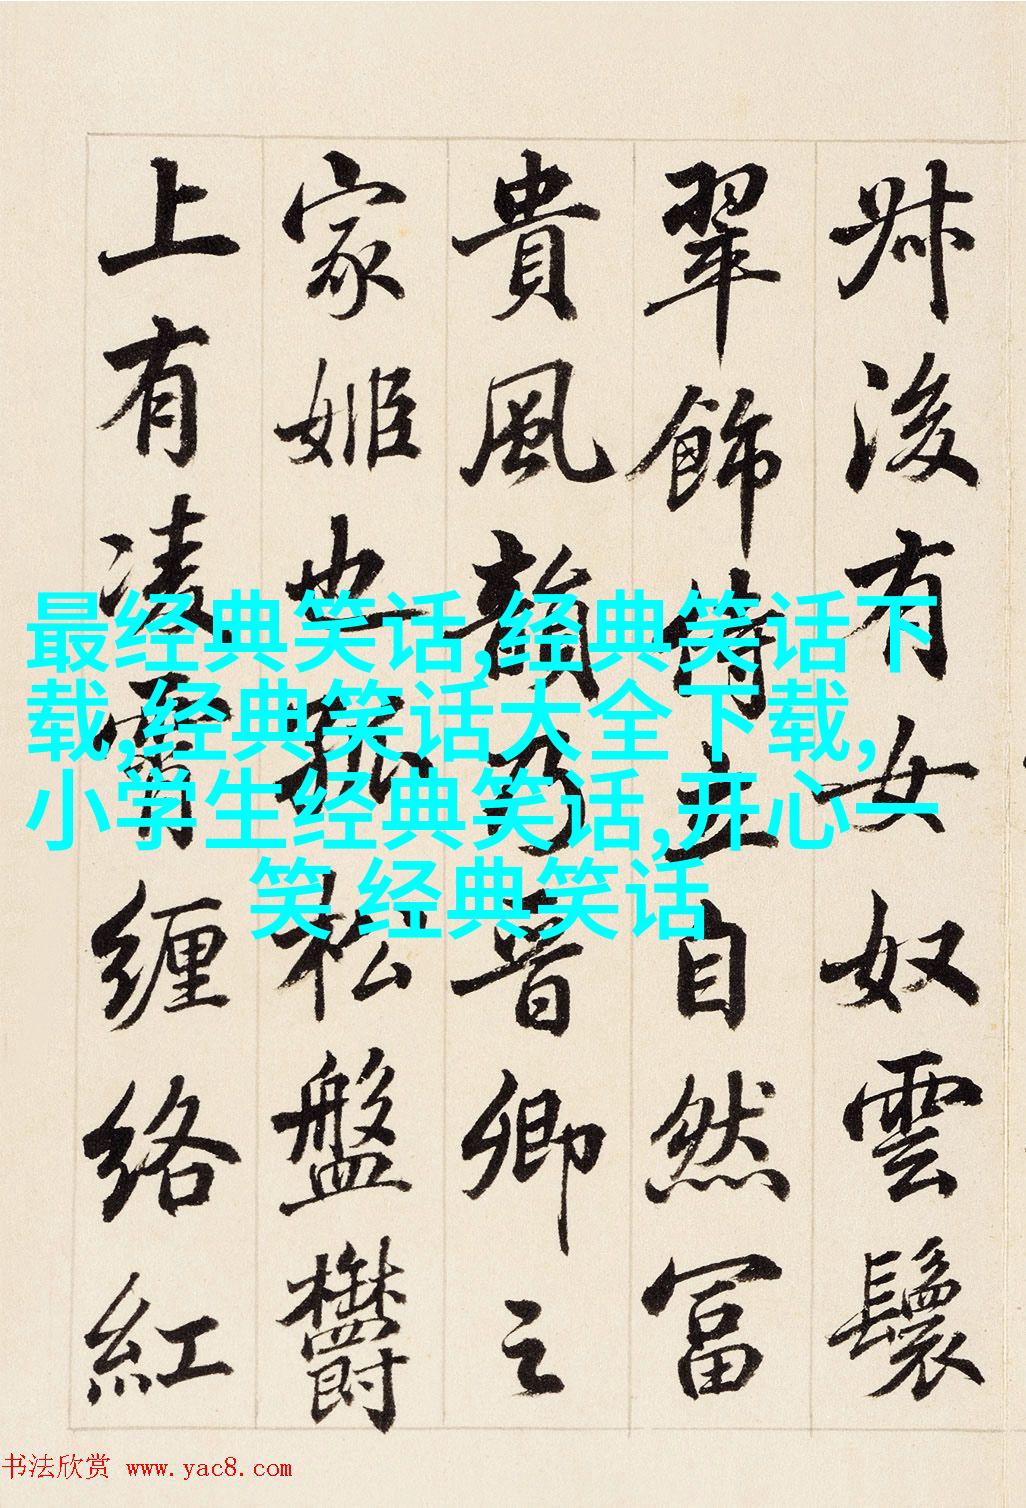 叔後有女奴雲鬟
翠飾侍立自然冨
貴風韻乃晉卿之
家姬也孤松盤鬱
上有凌霄纏絡紅
最经典笑话,经典笑话下
载,经典笑话大全下载,
小学生经典笑话,开心一
笑 经典笑话
书法欣赏 www.yac8.com